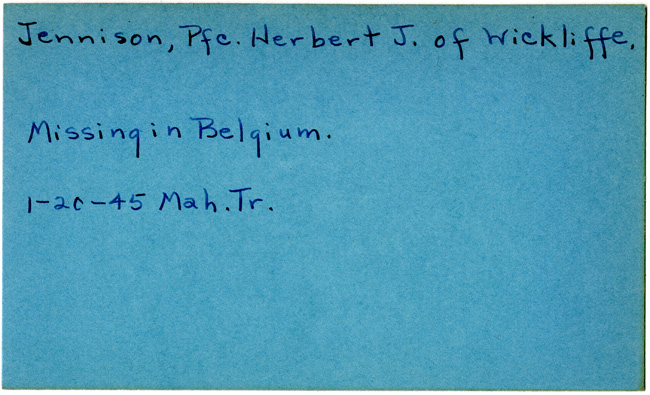 Jennison, Pfc. Herbert J. of Wickliffe.
Missing in Belgium.
1-20-45 Mah. Tr.